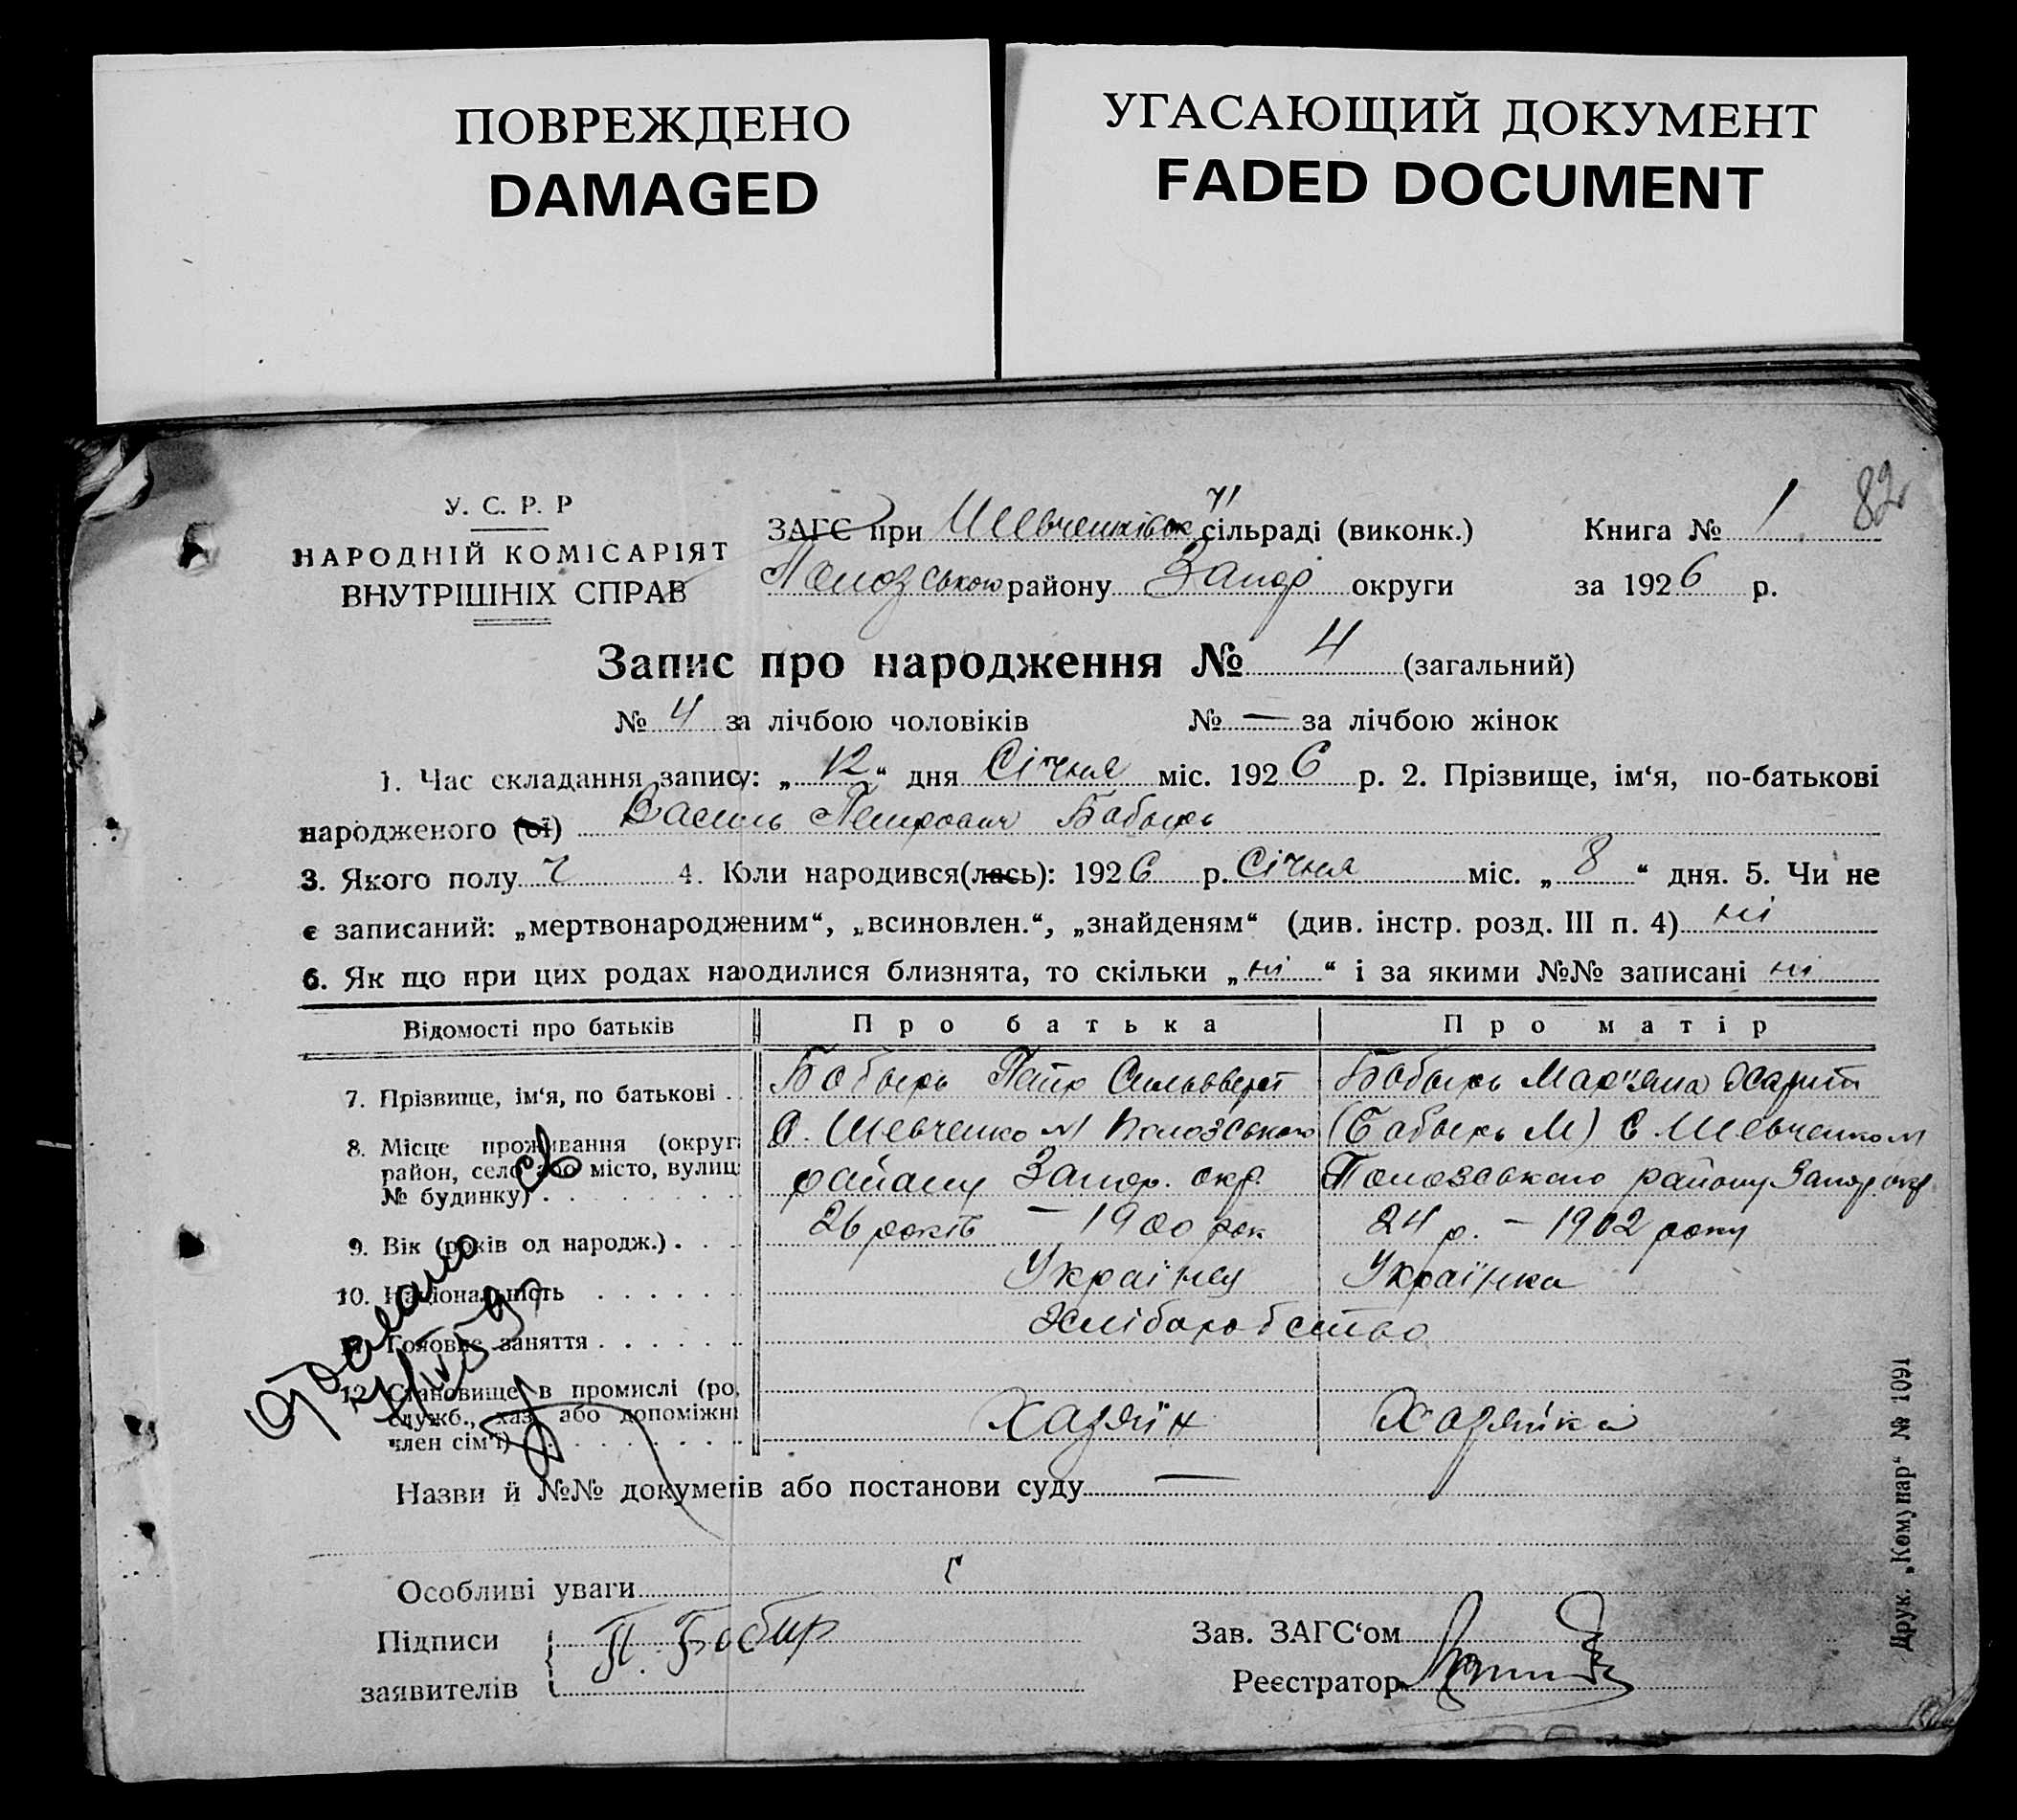 ПОВРЕЖДЕНО
DAMAGED
УГАСАЮЩИЙ ДОКУМЕНТ
FADED DOCUMENT
82
У. С. Р. Р
НАРОДНІЙ КОМІСАРІЯТ
ВНУТРІШНІХ СПРАВ
ЗАГС при Шевченківск сільраді (виконк.) Книга № 1
Пологзською району Запор округи за 1926 р.
Запис про народження № 4 (загальний)
№ 4 за лічбою чоловіків № — за лічбою жінок
1. Час складання запису: „ 12 “ дня Січня міс. 1926 р. 2. Прізвище, ім‘я, по-батькові
народженого (ої) Василь Петрович Бабырь
3. Якого полу ч 4. Коли народився(лась): 1926 р. Січня міс. „ 8 “ дня. 5. Чи не
є записаний: „мертвонародженим“, „всиновлен.“, „знайденям“ (див. інстр. розд. III п. 4) ні
6. Як що при цих родах народилися близнята, то скільки „ ні “ і за якими №№ записані ні
Відомості про батьків Про батька Про матір
7. Прізвище, ім‘я, по батькові . . Бабырь Петр Сильверст Бабырь Мар'яна Харит
8. Місце проживання (округ С. Шевченко Пологзського (Бабырь М) С Шевченко
район, село або місто, вулиц району Запор. окр. Пологзського району Запор окр
№ будинку) . . . . . . . . .
9. Вік (років од народж.) . . . 26 років — 1900 рок 24 р. — 1902 року
10. Національність . . . . . . Українец Українка
11. Головне заняття . . . . . . Хліборобство
12. Становище в промислі (ро, Хазяїн Хазяйка
служб., хаз. або допоміжні
член сім‘ї) . . . . . . . . .
Назви й №№ документів або постанови суду —
Особливі уваги
Підписи П. Бабир Зав. ЗАГС‘ом
заявителів Реєстратор
Друк. „Комунар“ № 1091